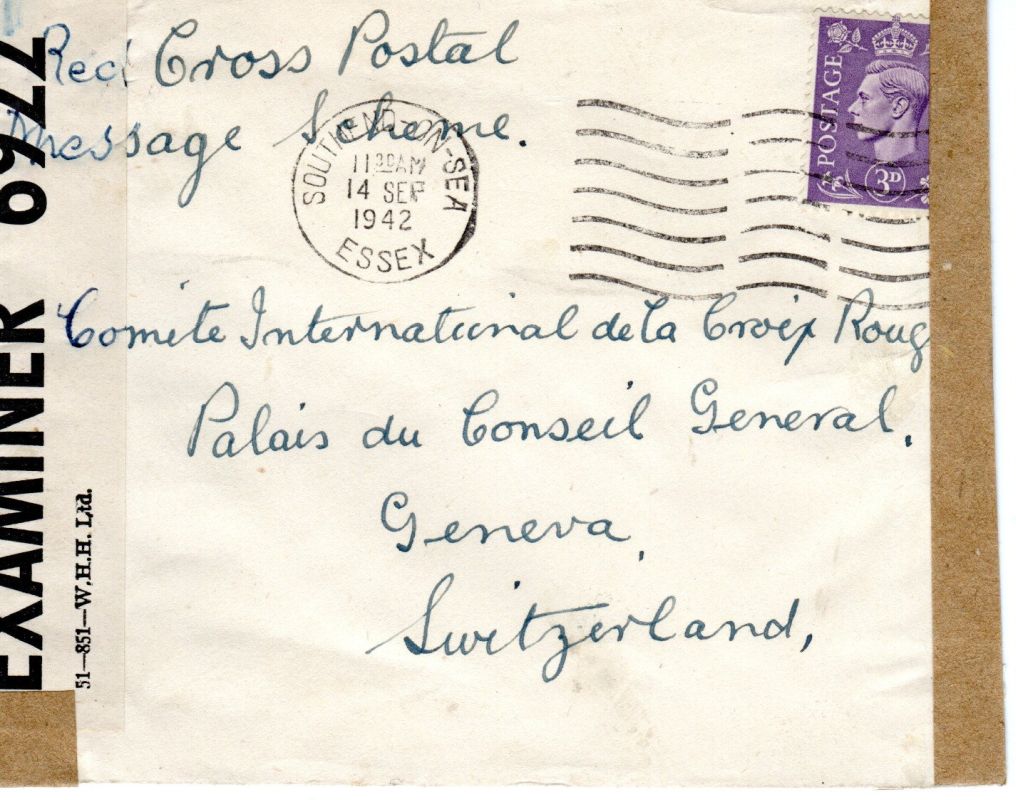 Red Cross Postal
Message Scheme.
SOUTHEND-ON-SEA
11 30 AM
14 SEP
1942
ESSEX
POSTAGE
3D
Comite International de la Croix Roug
Palais du Conseil General.
Geneva,
Switzerland,
EXAMINER 6922
51—851—W.H.H. Ltd.